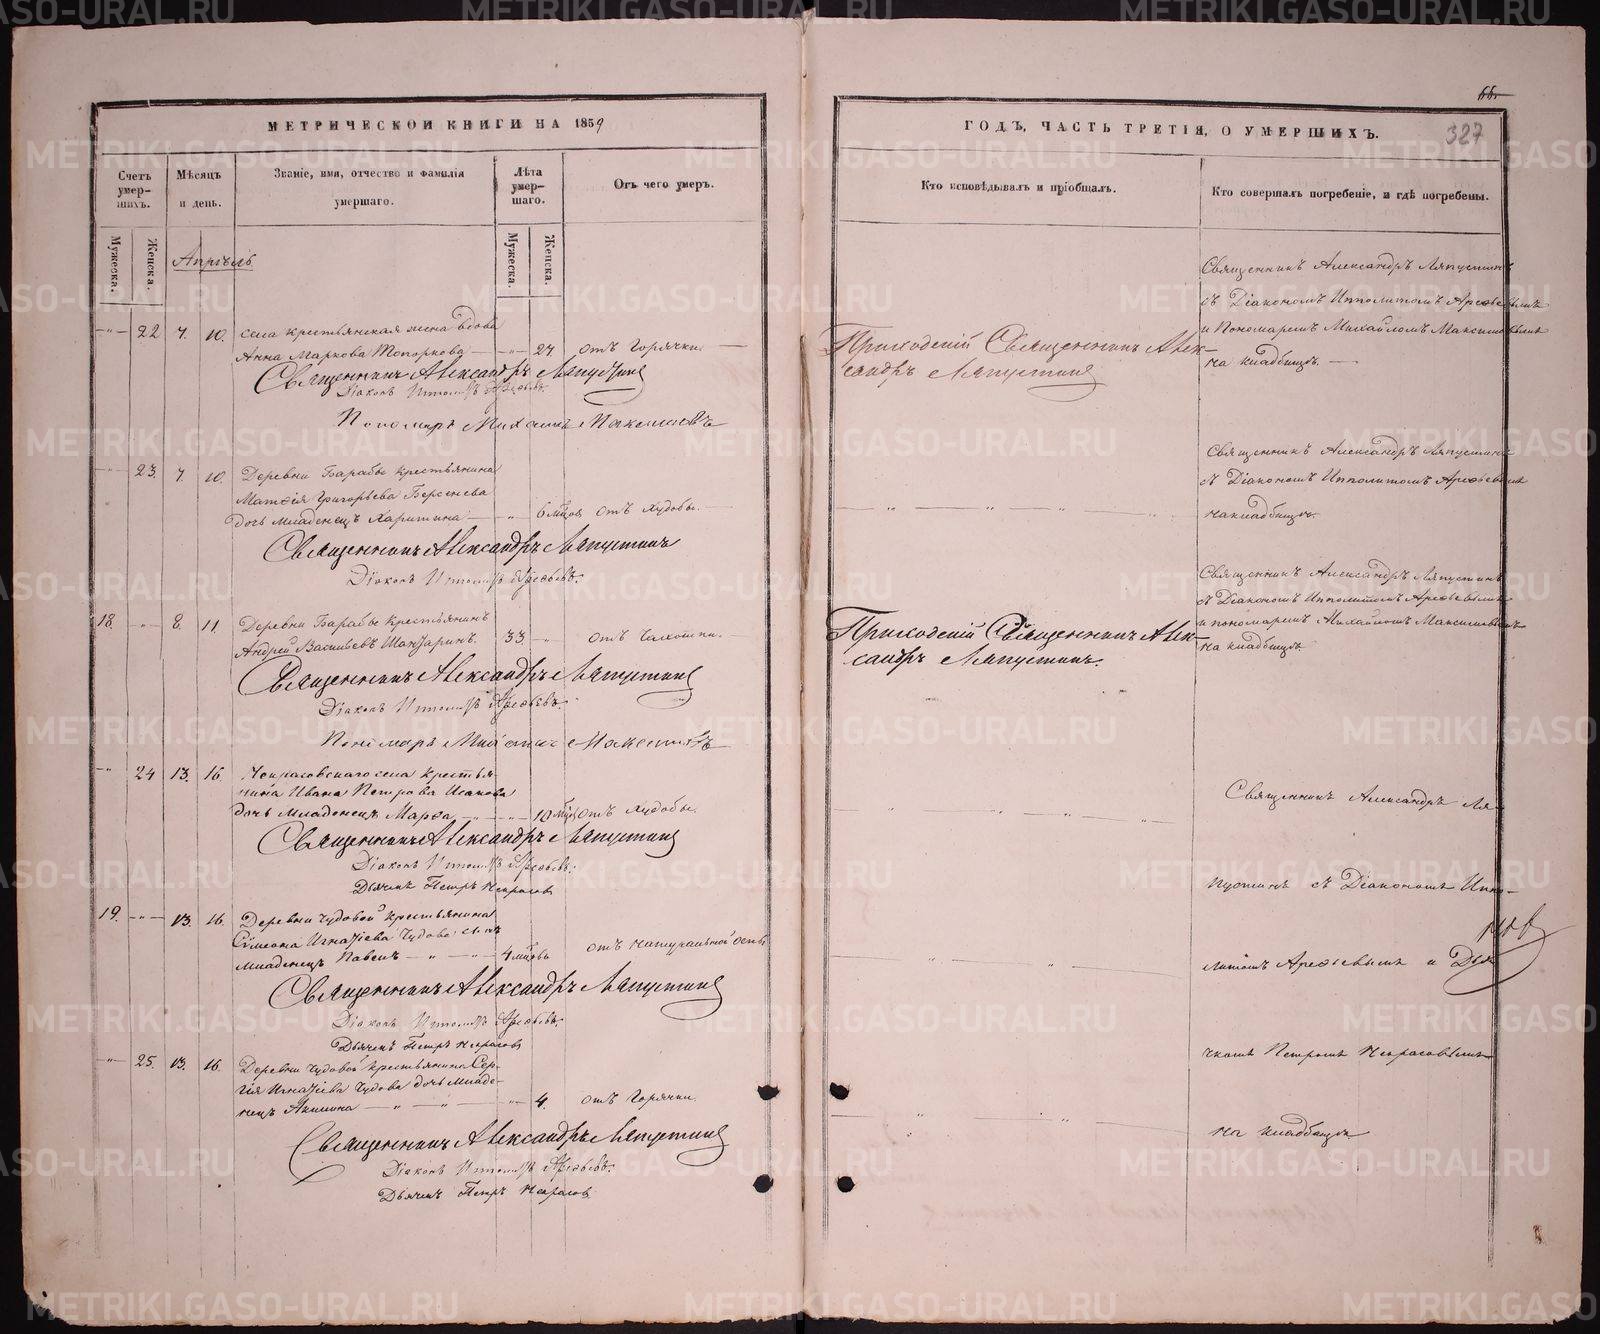 МЕТРИЧЕСКОЙ КНИГИ НА 1859
Счетъ умер-шихъ.
Мѣсяцъ и день.
Званіе, имя, отчество и фамилія умершаго.
Лѣта умер-шаго.
Отъ чего умеръ.
Мужеска.
Женска.
Мужеска.
Женска.
Апрѣль
22 7. 10. села крестьянская жена вдова
Анна Маркова Топоркова 27 отъ горячки.
Священникъ Александръ Ляпустинъ
Діаконъ Ипполитъ Арефьевъ.
Пономарь Михаилъ Максимовъ
23. 7. 10. Деревни Барабы крестьянина
Матѳія Григорьева Берсенева
дочь младенецъ Харитина 6 мцовъ отъ худобы.
Священникъ Александръ Ляпустинъ
Діаконъ Ипполитъ Арефьевъ.
18. 8. 11. Деревни Барабы крестьянинъ
Андрей Васильевъ 33. отъ чахотки.
Священникъ Александръ Ляпустинъ
Діаконъ Ипполитъ Арефьевъ.
Пономарь Михаилъ Максимовъ
24 13. 16. Некрасовскаго села крестья-
нина Ивана Петрова Исакова
дочь младенецъ Марѳа 10 мцов отъ худобы.
Священникъ Александръ Ляпустинъ
Діаконъ Ипполитъ Арефьевъ.
Дьячекъ Петръ Некрасов
19. 13. 16. Деревни Чудовой крестьянина
Симеона Игнатіева Чудова сынъ
младенецъ Павелъ 4 мцовъ отъ натуральной оспы
Священникъ Александръ Ляпустинъ
Діаконъ Ипполитъ Арефьевъ.
Дьячекъ Петръ Некрасов
25. 13. 16. Деревни Чудовой крестьянина Сер-
гія Игнатіева Чудова дочь младе-
нецъ Акилина 4. отъ горячки.
Священникъ Александръ Ляпустинъ
Діаконъ Ипполитъ Арефьевъ.
Дьячекъ Петръ Некрасов
66.
327
ГОДЪ, ЧАСТЬ ТРЕТІЯ, О УМЕРШИХЪ.
Кто исповѣдывалъ и пріобщалъ.
Кто совершалъ погребеніе, и гдѣ погребены.
Приходскій Священникъ Алек-
сандръ Ляпустинъ
Священникъ Александръ Ляпустинъ
съ Діакономъ Ипполитомъ Арефьевымъ
и Пономаремъ Михайломъ Максимовымъ
на кладбищѣ.
Священникъ Александръ Ляпустинъ
съ Діакономъ Ипполитомъ Арефьевымъ
на кладбищѣ.
Приходскій Священникъ Алек-
сандръ Ляпустинъ.
Священникъ Александръ Ляпустинъ
съ Діакономъ Ипполитомъ Арефьевымъ
и пономаремъ Михайломъ Максимовымъ
на кладбищѣ
Священникъ Александръ Ля-
пустинъ съ Діакономъ Иппо-
литомъ Арефьевымъ и Дья-
чкомъ Петромъ Некрасовымъ
на кладбищѣ
METRIKI.GASO-URAL.RU